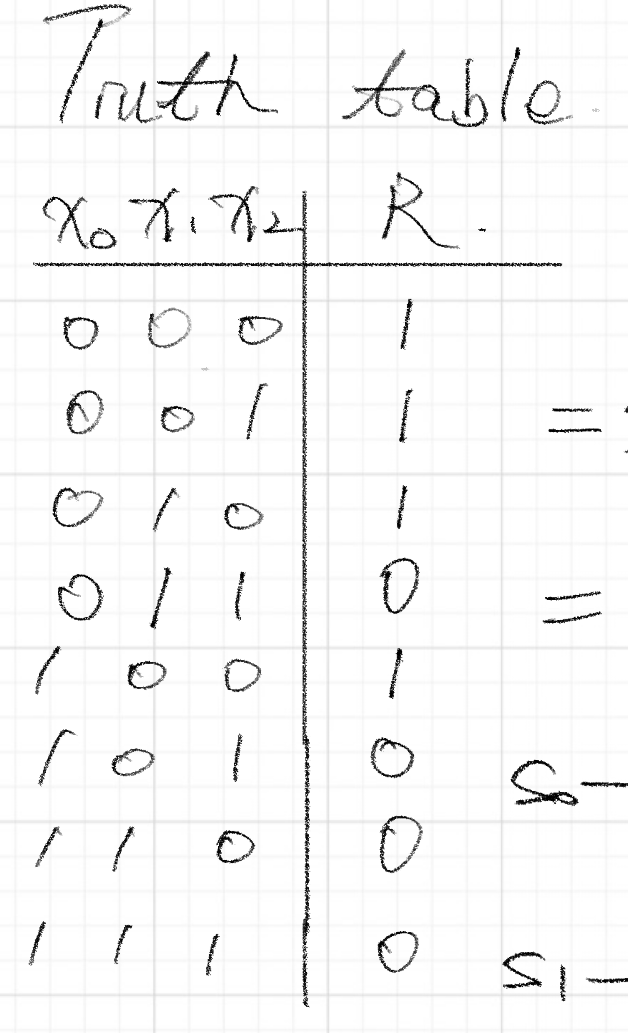 Truth table.
x₀ x₁ x₂ R.
0 0 0 1
0 0 1 1 =
0 1 0 1
0 1 1 0 =
1 0 0 1
1 0 1 0 S₀ –
1 1 0 0
1 1 1 0 S₁ –